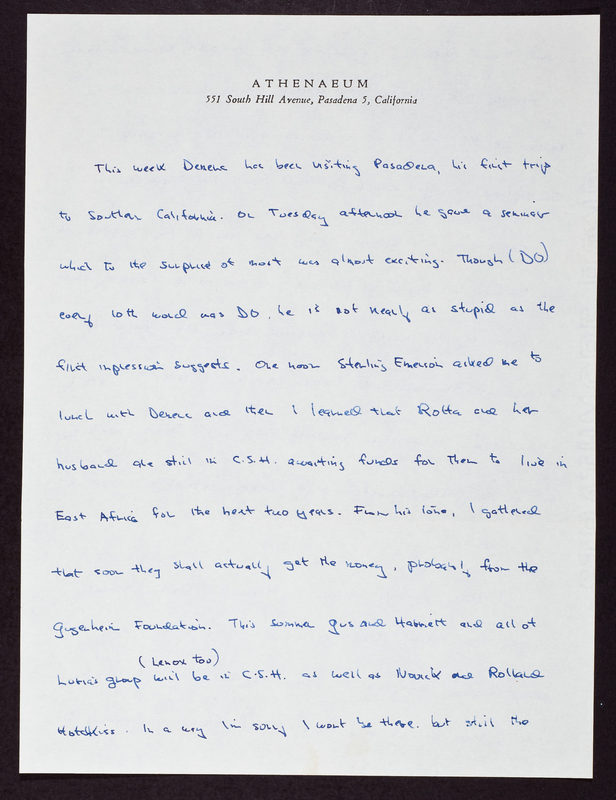 ATHENAEUM
551 South Hill Avenue, Pasadena 5, California
This week Demerec has been visiting Pasadena, his first trip
to Southern California. On Tuesday afternoon he gave a seminar
which to the surprise of most was almost exciting. Though (DO)
every 10th word was DO, he is not nearly as stupid as the
first impression suggests. One noon Sterling Emerson asked me to
lunch with Demerec and then I learned that Rolla and her
husband are still in C.S.H. awaiting funds for them to live in
East Africa for the next two years. From his tone, I gathered
that soon they shall actually get the money, probably from the
Gugenheim Foundation. This summer Gus and Harriett and all of
(Lenox too)
Luria's group will be in C.S.H. as well as Novick and Rolland
Hotchkiss. In a way I'm sorry I wont be there. but still the